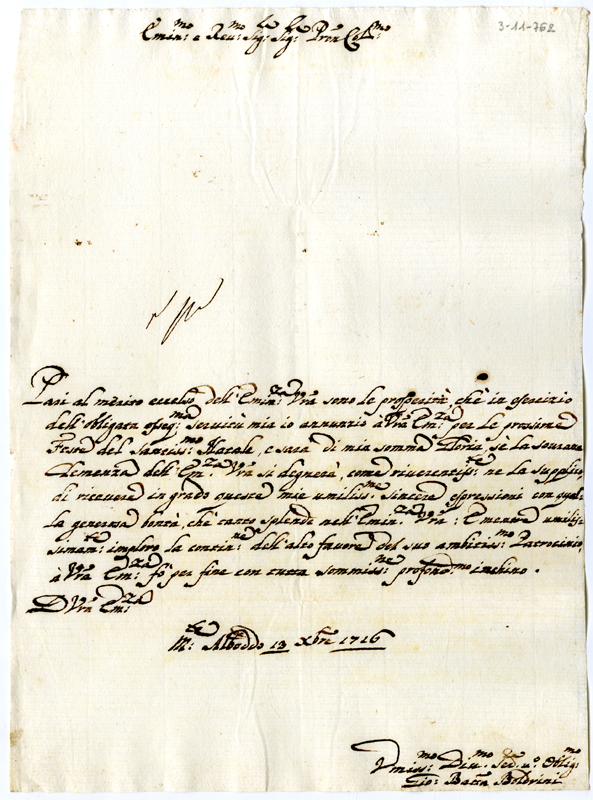 Emin:mo e Rev:mo Sig:re Sig:re Pron Col:mo
3-11-762
Pari al merito eccelso dell'Emin:za Vra sono le prosperità, chè in esercizio
dell'obligata osseq:ma servitù mia io annunzio à Vra Em:za per le prossime
Feste del Santiss:mo Natale, e sarà di mia somma Gloria, sè la sourana
Clemenza dell'Em:za Vra si degnerà, come riverentiss:te ne la supplico,
di ricevere in grado queste mie umiliss:me sincere espressioni con quel
la generosa bontà, chè tanto splende nell'Emin:za Vra: E mentre umilis
simam:te imploro la contin:ne dell'alto favore del suo ambitiss:mo Patrocinio,
à Vra Em:za fò per fine con tutta sommiss:ne profond:mo inchino.
D Vra Em:za
M:te Alboddo 13 Xbre 1716
Vmiss:mo Diu:mo Ser.u:e Oblig:mo
Gio: Batta Boldrini